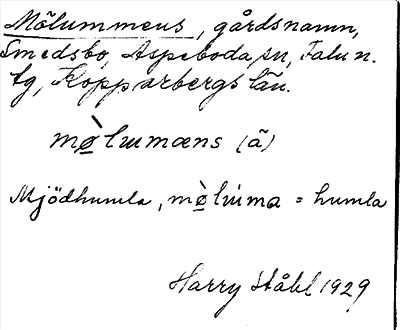 Mölummeus, gårdsnamn,
Smedsbo, Aspeboda sn, Falu n.
tg, Kopparbergs län.
mø̀lɯmæns (ã)
Mjödhumla, mø̀lɯ́ma = humla
Harry Ståhl 1929